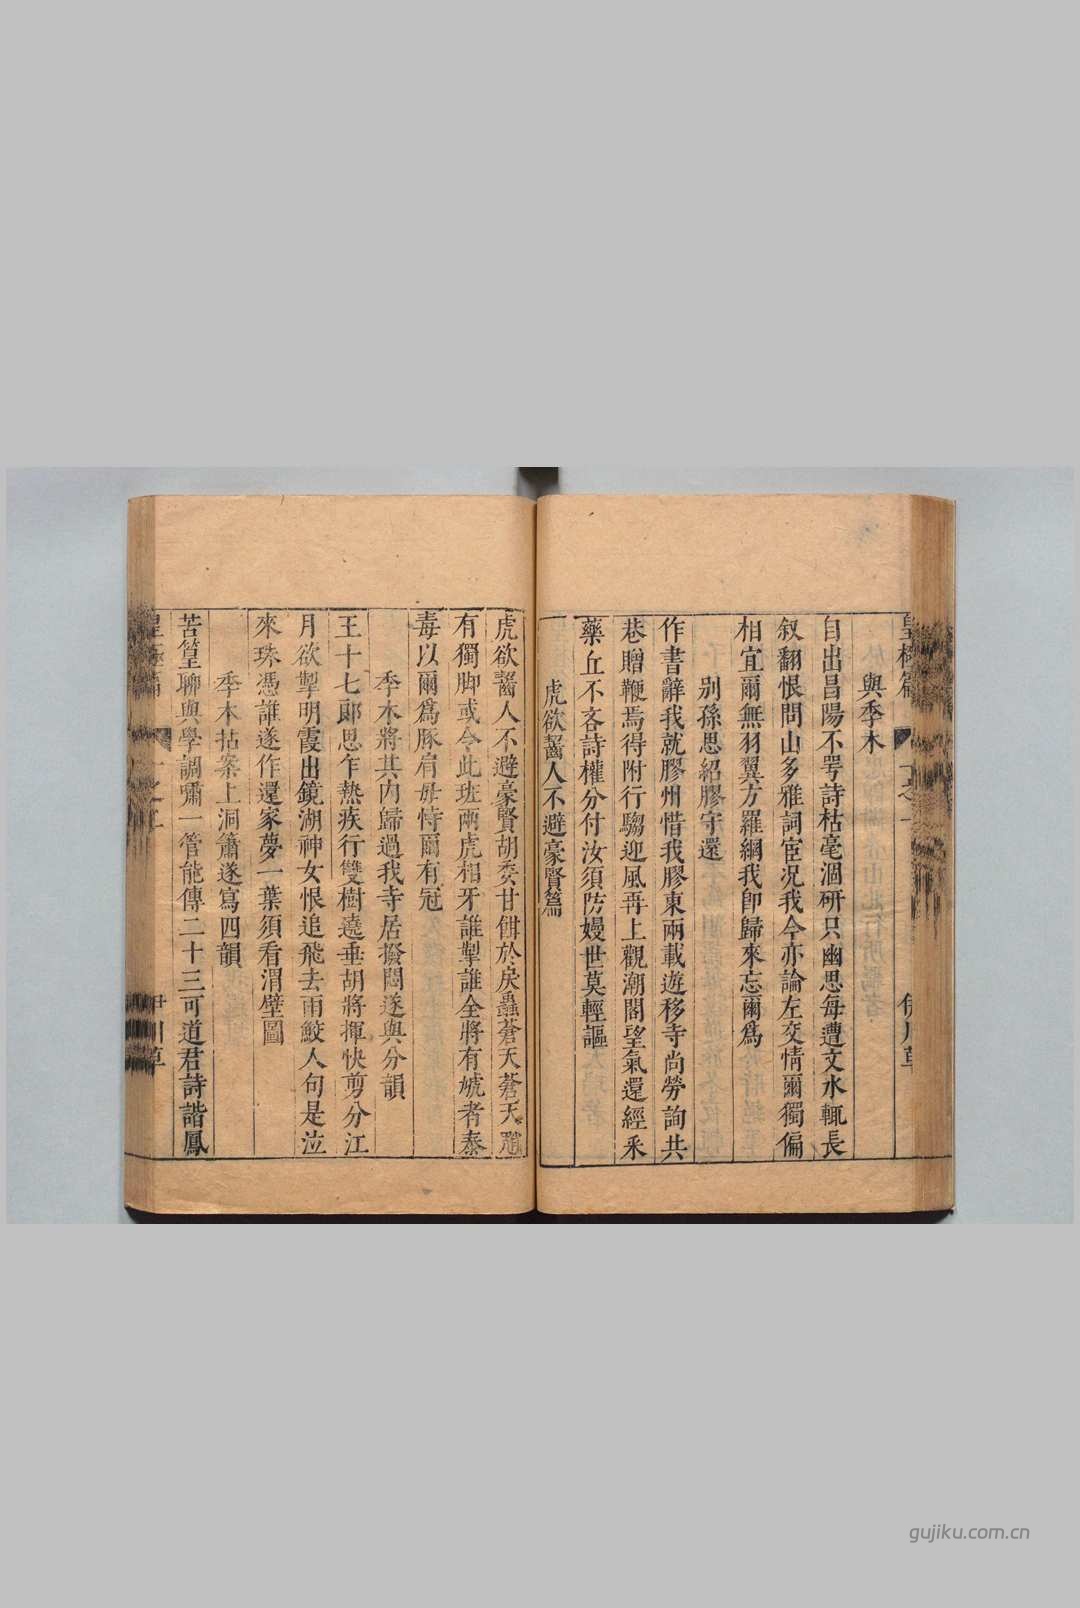 與季木
自出昌陽不咢詩枯毫涸研只幽思每遭文水輒長
叙翻恨問山多雅詞宦况我今亦論左交情爾獨偏
相宜爾無羽翼方羅網我卽歸來忘爾爲
別孫思紹膠守還
作書辭我就膠州惜我膠東兩載遊移寺尚勞詢共
巷贈鞭焉得附行騶迎風再上觀潮閣望氣還經釆
藥丘不吝詩權分付汝須防嫚世莫輕謳
虎欲齧人不避豪賢篇
虎欲齧人不避豪賢胡奕甘餌於戾蟲蒼天蒼天
有獨脚或令此班兩虎相牙誰掣誰全將有虓者泰
毒以爾爲豚肩毋恃爾有冠
季木將其內歸過我寺居撥悶遂與分韻
王十七郞思乍熱疾行雙樹遶垂胡將揮快剪分江
月欲掣明霞出鏡湖神女恨追飛去雨鮫人句是泣
來珠憑誰遂作還家夢一葉須看渭壁圖
季木拈案上洞簫遂寫四韻
苦篁聊與學調嘯一管能傳二十三可道君詩諧鳳
皇極篇
伊川草
gujiku.com.cn